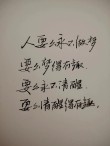 人要么永不做梦
要么梦得有趣
要么永不清醒
要么清醒得有趣